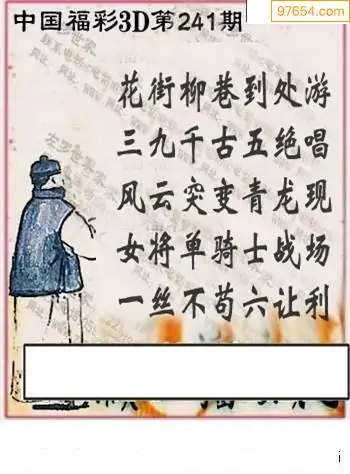 97654.com
中国福彩3D第241期
花街柳巷到处游
三九千古五绝唱
风云突变青龙现
女将单骑士战场
一丝不苟六让利
i